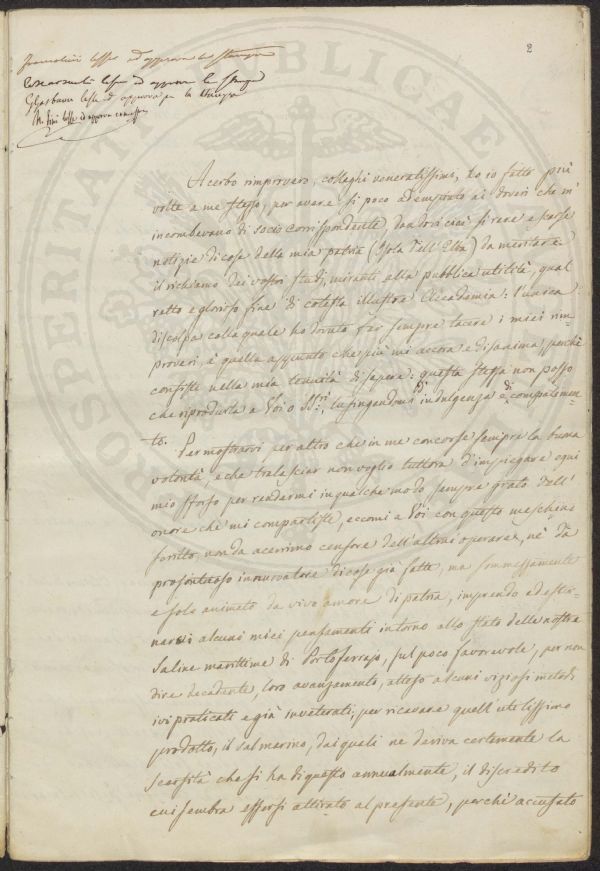 2
lesse ed approva la stampa
lesse ed approva la stampa
lesse ed approva per la stampa
lesse ed approva
Acerbo rimprovero, colleghi veneratissimi, ho io fatto più
volte a me stesso, per avere sì poco adempiuto ai doveri che m'
incombevano di socio corrispondente, dandovi così rare e scarse
notizie di cose della mia patria (Isola dell'Elba) da meritare
il richiamo dei vostri studj, miranti alla pubblica utilità, qual
retto e glorioso fine di cotesta illustre Accademia: l'unica
discolpa colla quale ho dovuto far sempre tacere i miei rim-
proveri, è quella appunto che più mi accora e disanima, perchè
consiste nella mia tenuità di sapere: questa stessa non posso
che riprodurla a Voi o SSri, lusingandomi d'indulgenza e di compatimen-
to.
Per mostrarvi per altro che in me concorse sempre la buona
volontà, e che tralasciar non voglio tuttora d'impiegare ogni
mio sforzo per rendermi in qualche modo sempre grato dell'
onore che mi compartiste, eccomi a Voi con questo meschino
scritto, non da acerrimo censore dell'altrui operare, nè da
prosontuoso innuovatore di cose già fatte, ma sommessamente
e solo animato da vivo amore di patria, imprendo ad ester-
narvi alcuni miei pensamenti intorno allo stato delle nostre
Saline marittime di Portoferrajo, sul poco favorevole, per non
dire decadente, loro avanzamento, atteso alcuni viziosi metodi
ivi praticati e già inveterati, per ricavare quell'utilissimo
prodotto, il sal marino, dai quali ne deriva certamente la
scarsità che si ha di questo annualmente, il discredito
cui sembra essersi attirato al presente, perchè accusato